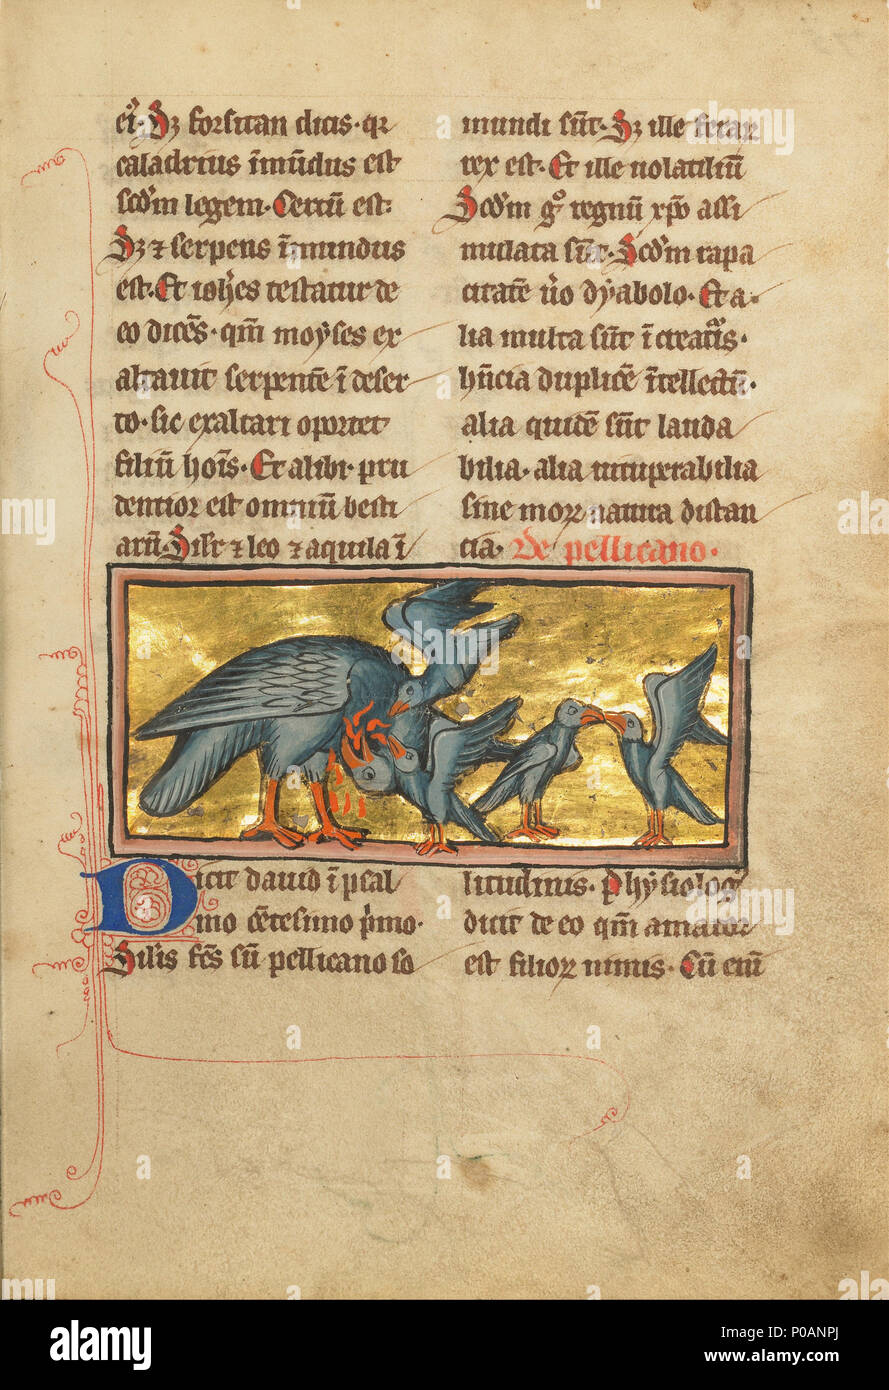 ei. Sꝫ forsitan dicis. qꝛ
caladrius īmūdus est
scd̄m legem. Certū est:
Sꝫ ⁊ serpens īmundus
est. Et ioh̄es testatur de
eo dicēs. qm̄ moyses ex
altauit serpentē ī deser
to. sic exaltari oportet
filiū hoīs. Et alibi. pru
dentior est omniū besti
arū. Silr̄ ⁊ leo ⁊ aquila ī
mundi sūt. Sꝫ ille ferarꝝ
rex est. Et ille uolatiliū
Scd̄m gͦ regnū xp̄o assi
milata sūt. Scd̄m rapa
citatē u̇o dyabolo. Et a.
lia multa sūt ī creatᷓis.
hn̄cia duplicē ītellectū.
alia quidē sūt lauda
bilia. alia uituperabilia
sine moꝝ natura distan
cia. De pellicano.
Dicit dauid ī psal
mo cētesimo pͥmo.
Silis fc̄s sū pellicano so
litudinis. Phisiologꝰ
dicit de eo qm̄ amator
est filioꝝ nimis. Cū enī
alamy
alamy
Image ID: P0ANPJ
www.alamy.com